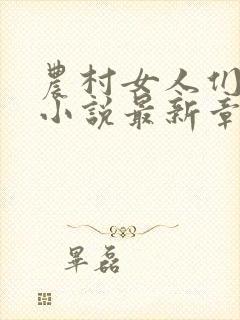 農村女人们
小說最新章
畢磊